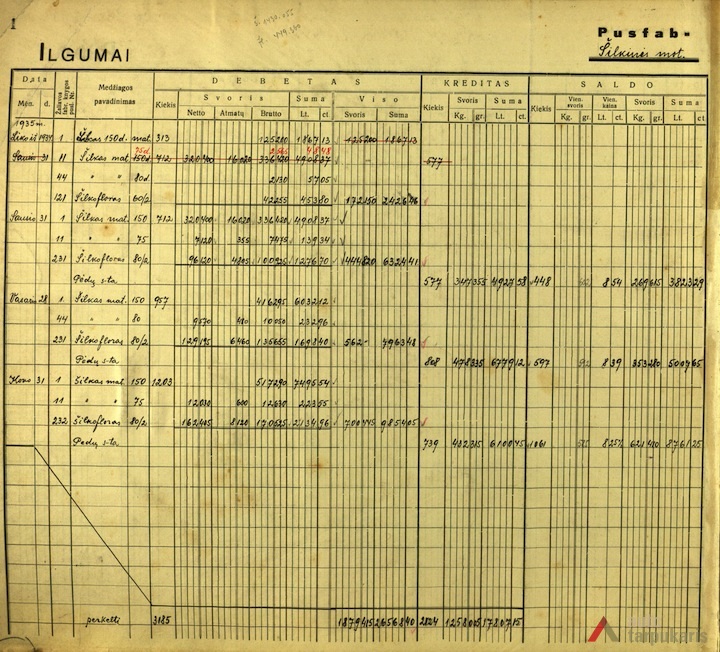 1
ILGUMAI
Pusfab-
Šilkinės mot.
Data DEBETAS KREDITAS SALDO
Mėn. d. Medžiagos pavadinimas Kiekis Svoris Suma Viso Kiekis Svoris Suma Kiekis Vien. svoris Vien. kaina Svoris Suma
Netto Atmatų Brutto Lt. ct. Svoris Suma Kg. gr. Lt. ct. Kg. gr. Lt. ct. Kg. gr. Lt. ct.
1935 m.
1 Šilkas 150d. mat. 313 125200 186713 125200 186713
75d. 2.565 48.48
Sausio 31 11 Šilkas mat. 150d. 712 320400 16020 336420 490837 577
44 " " 80d 2130 5705
121 Šilkofloras 60/2 42255 45380 172150 242646
Sausio 31 1 Šilkas mat. 150 712 320400 16020 336420 490837
11 " " 75 7120 355 7475 13934
231 Šilkofloras 80/2 96120 4805 100925 127670 444820 632441
Pėdų s-ta 577 347355 492758 448 854 269615 382329
Vasario 28 1 Šilkas mat. 150 957 416295 603212
44 " " 80 9570 480 10050 23296
231 Šilkofloras 80/2 129195 6460 135655 169840 562- 796348
Pėdų s-ta 808 478335 677912 597 839 353280 500765
Kovo 31 1 Šilkas mat. 150 1203 517290 749554
11 " " 75 12030 600 12630 22355
232 Šilkofloras 80/2 162405 8120 170525 213496 700445 985405
Pėdų s-ta 739 482315 610045 1061 825 621410 876125
perkelti 3185 1879415 2656840 2824 1258005 1780715
tarpukaris